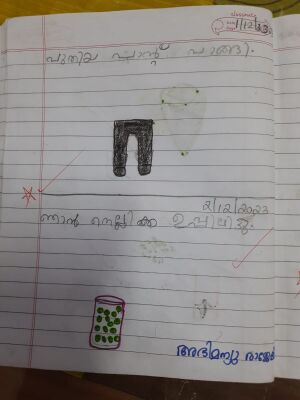 classmate
1/12/23
പുതിയ പാന്റ് വാങ്ങി.
2/12/2023
ഞാൻ നെല്ലിക്ക ഉപ്പിലിട്ടു.
അഭിമന്യു രാജേഷ്